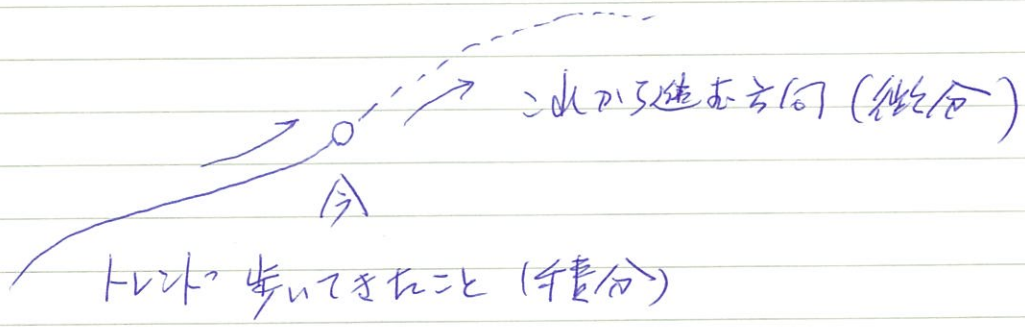 これから進む方向（微分）
今
トレンド 歩いてきたこと（積分）